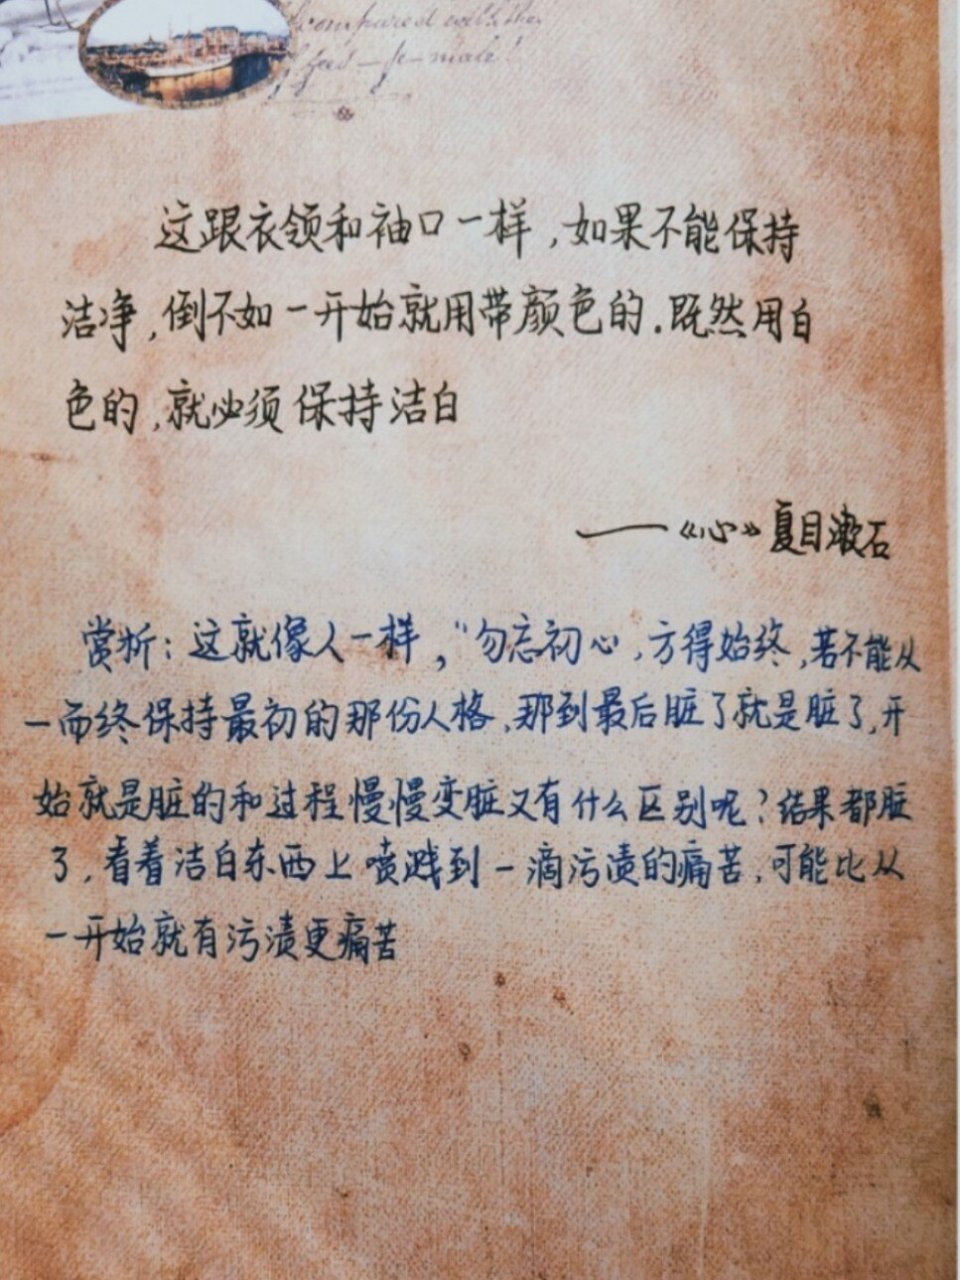 compared with the
feed
这跟衣领和袖口一样,如果不能保持
洁净,倒不如一开始就用带颜色的.既然用白
色的,就必须保持洁白
——《心》夏目漱石
赏析:这就像人一样,“勿忘初心,方得始终,若不能从
一而终保持最初的那份人格,那到最后脏了就是脏了,开
始就是脏的和过程慢慢变脏又有什么区别呢?结果都脏
了,看着洁白东西上喷溅到一滴污渍的痛苦,可能比从
一开始就有污渍更痛苦